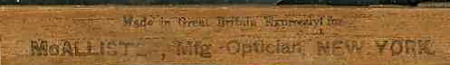 Made in Great Britain Expressly for
McALLISTER, Mfg Optician, NEW YORK.